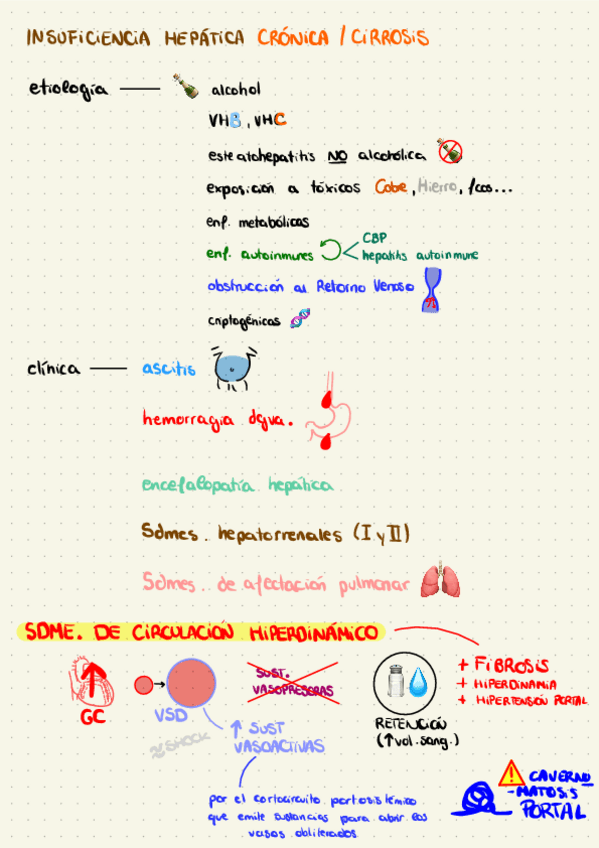 INSUFICIENCIA HEPÁTICA CRÓNICA / CIRROSIS
etiología — alcohol
VHB, VHC
esteatohepatitis NO alcohólica
exposición a tóxicos Cobre, Hierro, fcos...
enf. metabólicas
enf. autoinmunes
CBP
hepatitis autoinmune
obstrucción al Retorno Venoso
criptogénicas
clínica — ascitis
hemorragia dgva.
encefalopatía hepática
Sdmes. hepatorrenales (I y II)
Sdmes. de afectación pulmonar
SDME. DE CIRCULACIÓN HIPERDINÁMICO
GC
VSD
≈ SHOCK
SUST.
VASOPRESORAS
↑ SUST
VASOACTIVAS
RETENCIÓN
(↑vol. sang.)
+ FIBROSIS
+ HIPERDINAMIA
+ HIPERTENSIÓN PORTAL
por el cortocircuito portosistémico
que emite sustancias para abrir los
vasos obliterados
CAVERNO
-MATOSIS
PORTAL